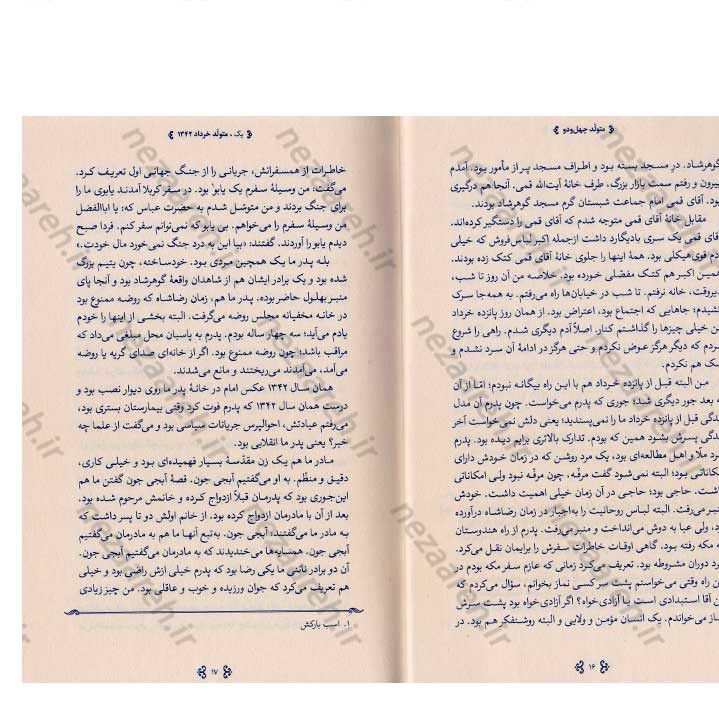 متولّد چهل‌ودو
گوهرشاد. درِ مسجد بسته بود و اطراف مسجد پر از مأمور بود. آمدم
بیرون و رفتم سمت بازار بزرگ، طرف خانهٔ آیت‌الله قمی. آنجا هم درگیری
بود. آقای قمی امام جماعت شبستان گرم مسجد گوهرشاد بودند.
مقابل خانهٔ آقای قمی متوجه شدم که آقای قمی را دستگیر کرده‌اند.
آقای قمی یک سری بادیگارد داشت ازجمله اکبر لباس‌فروش که خیلی
آدم قوی‌هیکلی بود. همهٔ اینها را جلوی خانهٔ آقای قمی کتک زده بودند.
همین اکبر هم کتک مفصّلی خورده بود. خلاصه من آن روز تا شب،
دیروقت، خانه نرفتم. تا شب در خیابان‌ها راه می‌رفتم. به همه‌جا سرک
کشیدم؛ جاهایی که اجتماع بود، اعتراض بود. از همان روز پانزده خرداد
من خیلی چیزها را گذاشتم کنار. اصلاً آدم دیگری شدم. راهی را شروع
کردم که دیگر هرگز عوض نکردم و حتی هرگز در ادامهٔ آن سرد نشدم و
شک هم نکردم.
من البته قبل از پانزده خرداد هم با این راه بیگانه نبودم؛ امّا از آن
به بعد جور دیگری شد؛ جوری که پدرم می‌خواست. چون پدرم آن مدل
زندگی قبل از پانزده خرداد ما را نمی‌پسندید؛ یعنی دلش نمی‌خواست آخر
زندگی پسرش بشود همین که بودم. تدارک بالاتری برایم دیده بود. پدرم
مرد ملّا و اهل مطالعه‌ای بود، یک مرد روشن که در زمان خودش دارای
امکاناتی بود؛ البته نمی‌شود گفت مرفّه، چون مرفّه نبود ولی امکاناتی
داشت. حاجی بود؛ حاجی در آن زمان خیلی اهمیت داشت. خودش
منبر می‌رفت. البته لباس روحانیت را به‌اجبار در زمان رضاشاه درآورده
بود، ولی عبا به دوش می‌انداخت و منبر می‌رفت. پدرم از راه هندوستان
به مکه رفته بود. گاهی اوقات خاطرات سفرش را برایمان نقل می‌کرد.
مرد دوران مشروطه بود. تعریف می‌کرد زمانی که عازم سفر مکه بودم در
این راه وقتی می‌خواستم پشت سر کسی نماز بخوانم، سؤال می‌کردم که
این آقا استبدادی است یا آزادی‌خواه؟ اگر آزادی‌خواه بود پشت سرش
نماز می‌خواندم. یک انسان مؤمن و ولایی و البته روشنفکر هم بود. در
۱۶
یک ، متولّد خرداد ۱۳۴۲
خاطرات از همسفرانش، جریانی را از جنگ جهانی اول تعریف کرد.
می‌گفت: من وسیلهٔ سفرم یک یابو۱ بود. در سفر کربلا آمدند یابوی ما را
برای جنگ بردند و من متوسّل شدم به حضرت عباس که: یا اباالفضل
من وسیلهٔ سفرم را می‌خواهم. بی یابو که نمی‌توانم سفر کنم. فردا صبح
دیدم یابو را آوردند. گفتند: «بیا این به درد جنگ نمی‌خورد مال خودت.»
بله پدر ما یک همچین مردی بود. خودساخته، چون یتیم بزرگ
شده بود و یک برادر ایشان هم از شاهدان واقعهٔ گوهرشاد بود و آنجا پای
منبر بهلول حاضر بوده. پدر ما هم، زمان رضاشاه که روضه ممنوع بود
در خانه مخفیانه مجلس روضه می‌گرفت. البته بخشی از اینها را خودم
یادم می‌آید؛ سه چهار ساله بودم. پدرم به پاسبان محل مبلغی می‌داد که
مراقب باشد؛ چون روضه ممنوع بود. اگر از خانه‌ای صدای گریه یا روضه
می‌آمد، می‌آمدند می‌ریختند و مانع می‌شدند.
همان سال ۱۳۴۲ عکس امام در خانهٔ پدر ما روی دیوار نصب بود و
درست همان سال ۱۳۴۲ که پدرم فوت کرد وقتی بیمارستان بستری بود،
می‌رفتم عیادتش، احوالپرس جریانات سیاسی بود و می‌گفت از علما چه
خبر؟ یعنی پدر ما انقلابی بود.
مادر ما هم یک زن مقدّسهٔ بسیار فهمیده‌ای بود و خیلی کاری،
دقیق و منظّم. به او می‌گفتیم آبجی جون. قصهٔ آبجی جون گفتن ما هم
این‌جوری بود که پدرمان قبلاً ازدواج کرده و خانمش مرحوم شده بود.
بعد از آن با مادرمان ازدواج کرده بود. از خانم اولش دو تا پسر داشت که
به مادر ما می‌گفتند: آبجی جون. به‌تبع آنها ما هم به مادرمان می‌گفتیم
آبجی جون. همسایه‌ها می‌خندیدند که به مادرمان می‌گفتیم آبجی جون.
آن دو برادر ناتنی ما یکی رضا بود که پدرم خیلی ازش راضی بود و خیلی
هم تعریف می‌کرد که جوان ورزیده و خوب و عاقلی بود. من چیز زیادی
۱. اسب بارکش
۱۷
nezaareh.ir